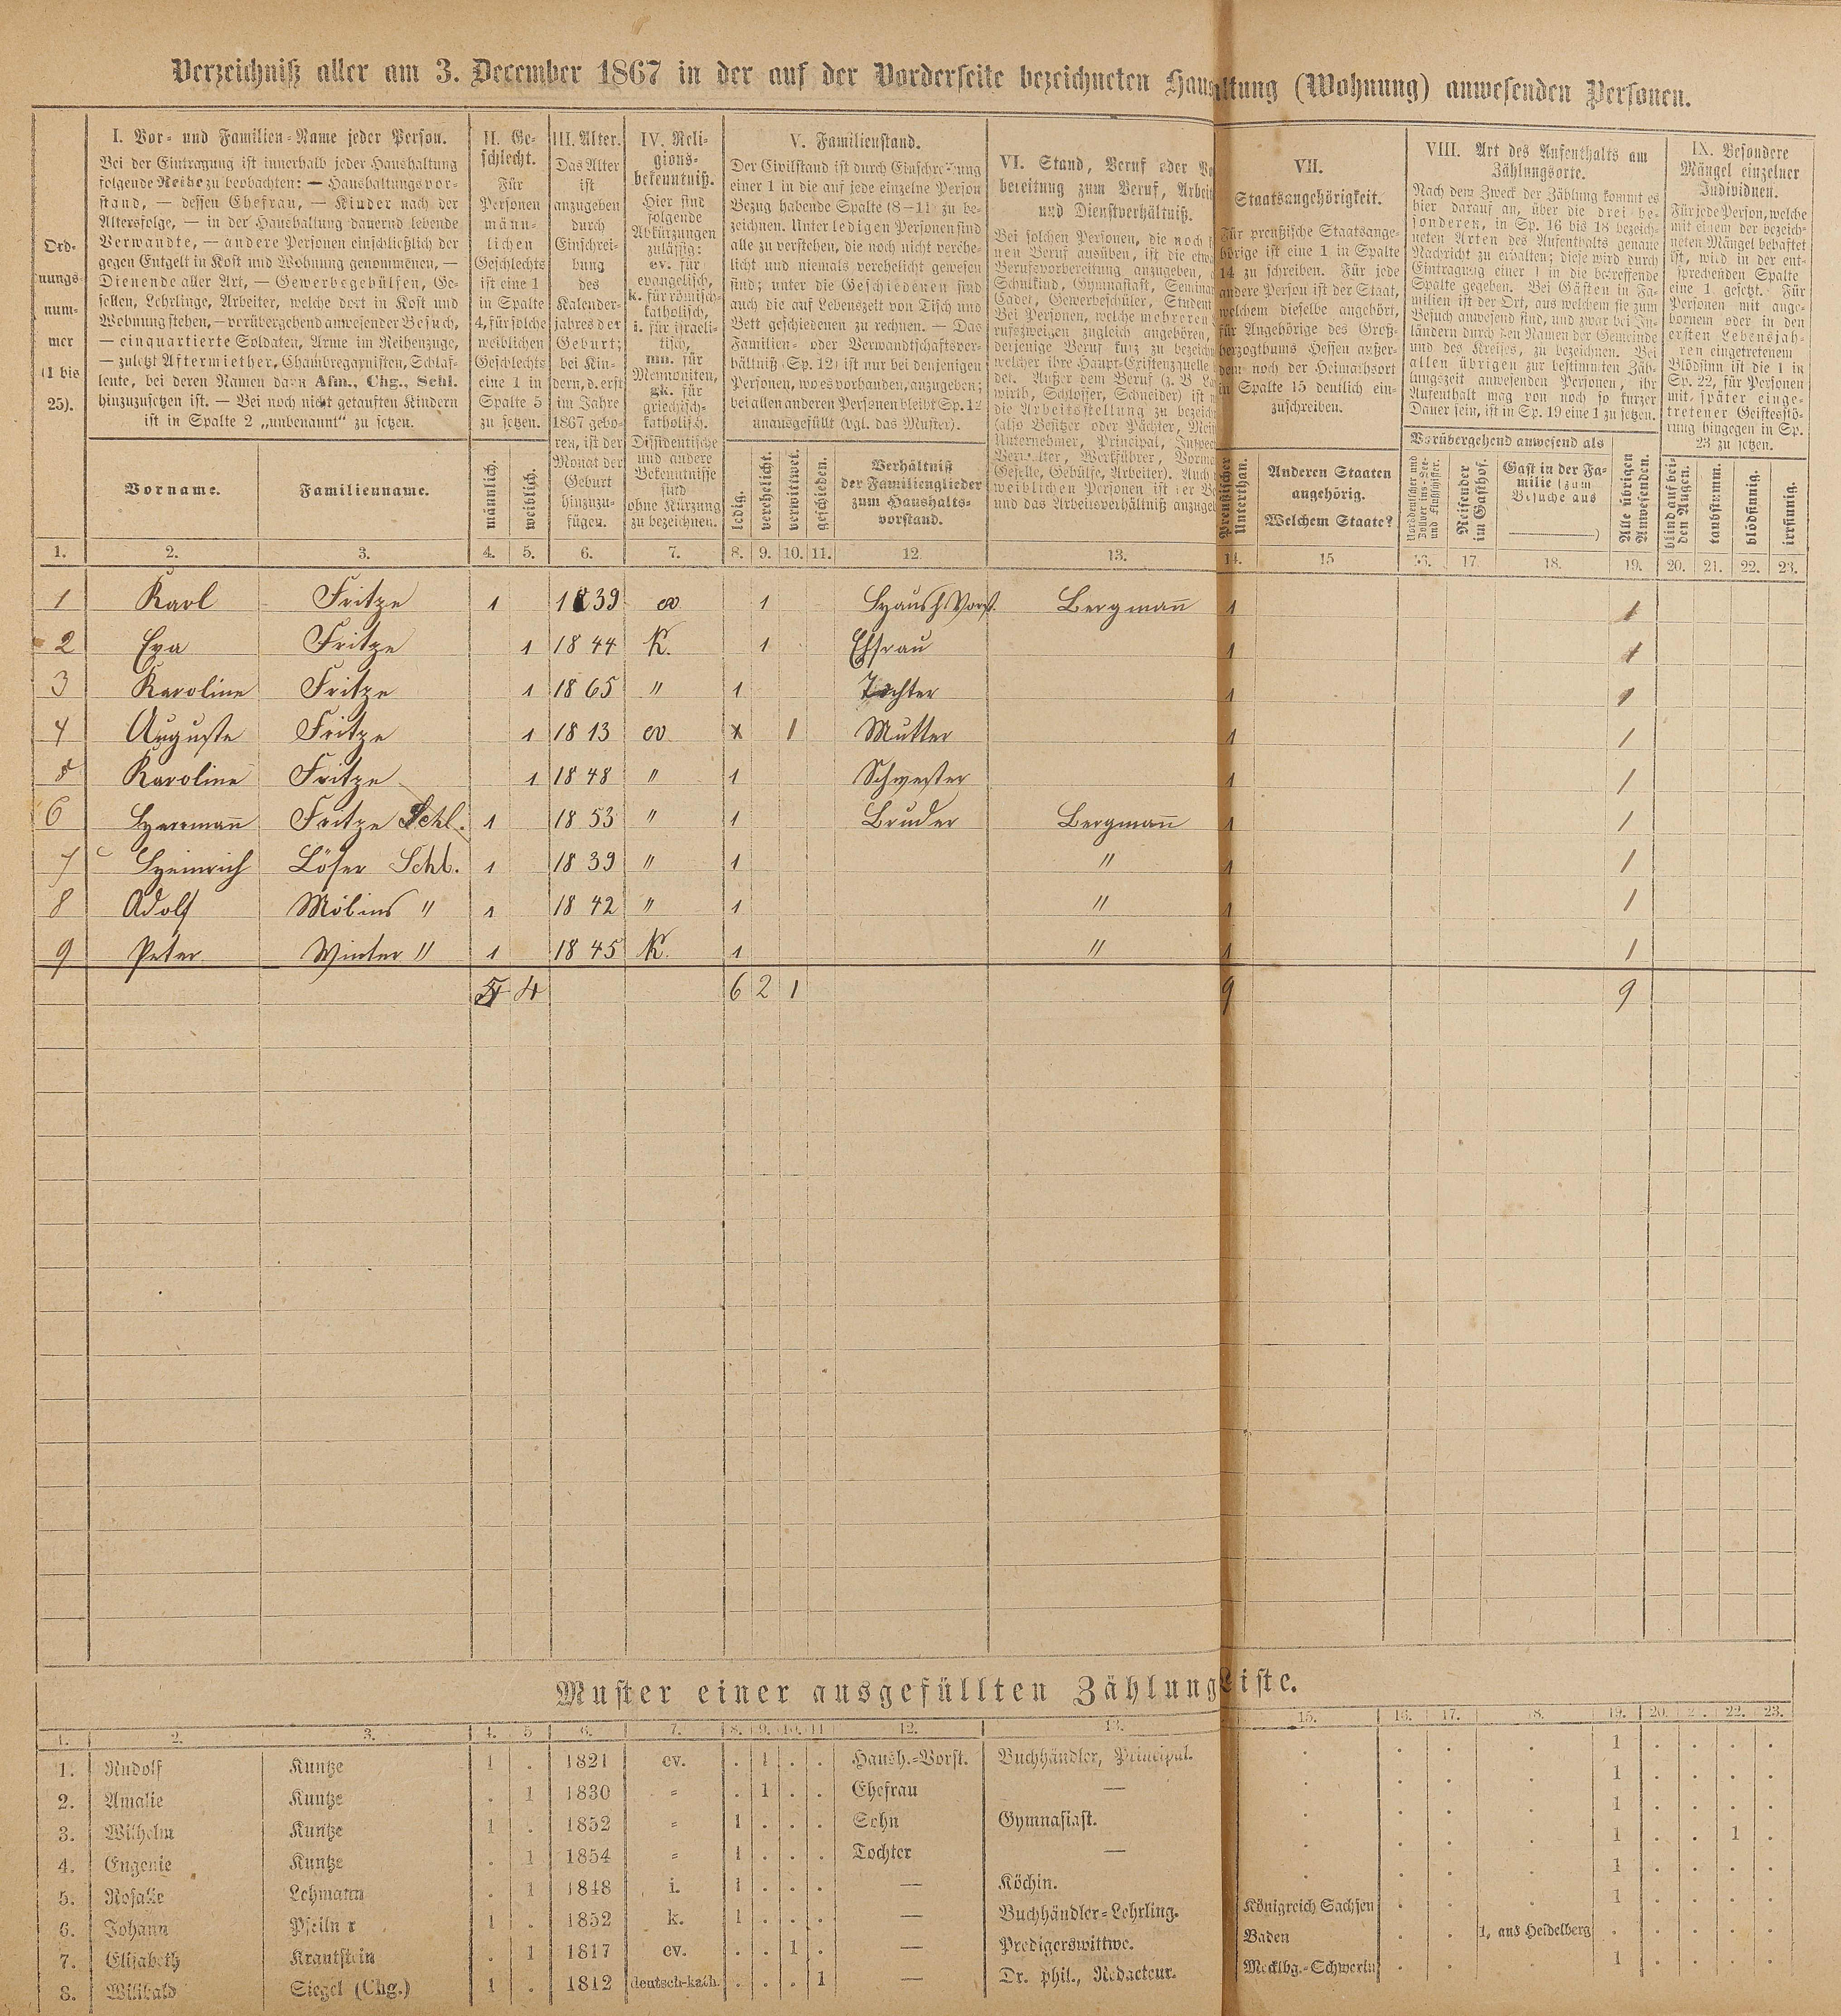 Verzeichniß aller am 3. December 1867 in der auf der Vorderseite bezeichneten Haushaltung (Wohnung) anwesenden Personen.
Ord-
nungs-
num-
mer
(1 bis
25).
I. Vor- und Familien-Name jeder Person.
Bei der Eintragung ist innerhalb jeder Haushaltung
folgende Reihe zu beobachten: — Haushaltungsvor-
stand, — dessen Ehefrau, — Kinder nach der
Altersfolge, — in der Haushaltung dauernd lebende
Verwandte, — andere Personen einschließlich der
gegen Entgelt in Kost und Wohnung genommenen, —
Dienende aller Art, — Gewerbsgehülfen, Ge-
sellen, Lehrlinge, Arbeiter, welche dort in Kost und
Wohnung stehen, — vorübergehend anwesender Besuch,
— einquartierte Soldaten, Arme im Reihenzuge,
— zuletzt Aftermiether, Chambregarnisten, Schlaf-
leute, bei deren Namen dann Afm., Chg., Schl.
hinzuzusetzen ist. — Bei noch nicht getauften Kindern
ist in Spalte 2 „unbenannt“ zu setzen.
Vorname.
Familienname.
II. Ge-
schlecht.
Für
Personen
männ-
lichen
Geschlechts
ist eine 1
in Spalte
4, für solche
weiblichen
Geschlechts
eine 1 in
Spalte 5
zu setzen.
männlich.
weiblich.
III. Alter.
Das Alter
ist
anzugeben
durch
Einschrei-
bung
des
Kalender-
jahres der
Geburt;
bei Kin-
dern, d. erst
im Jahre
1867 gebo-
ren, ist der
Monat der
Geburt
hinzuzu-
fügen.
IV. Reli-
gions-
bekenntniß.
Hier sind
folgende
Abkürzungen
zulässig:
ev. für
evangelisch,
k. für römisch-
katholisch,
i. für israeli-
tisch,
mn. für
Mennoniten,
gk. für
griechisch-
katholisch.
Dissidentische
und andere
Bekenntnisse
sind
ohne Kürzung
zu bezeichnen.
V. Familienstand.
Der Civilstand ist durch Einschreibung
einer 1 in die auf jede einzelne Person
Bezug habende Spalte (8—11) zu be-
zeichnen. Unter ledigen Personen sind
alle zu verstehen, die noch nicht verehe-
licht und niemals verehelicht gewesen
sind; unter die Geschiedenen sind
auch die auf Lebenszeit von Tisch und
Bett geschiedenen zu rechnen. — Das
Familien- oder Verwandtschaftsver-
hältniß (Sp. 12) ist nur bei denjenigen
Personen, wo es vorhanden, anzugeben;
bei allen anderen Personen bleibt Sp. 12
unausgefüllt (vgl. das Muster).
ledig.
verehelicht.
verwittwet.
geschieden.
Verhältniß
der Familienglieder
zum Haushalts-
vorstand.
VI. Stand, Beruf oder
bereitung zum Beruf,
und Dienstverhältniß.
Bei solchen Personen, die noch
nen Beruf ausüben, ist die
Berufsvorbereitung anzugeben,
Schulkind, Gymnasiast,
Cadet, Gewerbeschüler,
Bei Personen, welche mehreren
rufszweigen zugleich angehören,
derjenige Beruf kurz zu
welcher ihre Haupt-Existenzquelle
det. Außer dem Beruf (z. B.
wirth, Schlosser, Schneider) ist
die Arbeitsstellung zu
(also Besitzer oder Pächter,
Unternehmer, Principal,
Verwalter, Werkführer,
Geselle, Gehülfe, Arbeiter). Auch
weiblichen Personen ist der
und das Arbeitsverhältniß
VII.
Staatsangehörigkeit.
Für preußische Staatsange-
hörige ist eine 1 in Spalte
14 zu schreiben. Für jede
andere Person ist der Staat,
welchem dieselbe angehört,
für Angehörige des Groß-
herzogthums Hessen außer-
dem noch der Heimathsort
in Spalte 15 deutlich ein-
zuschreiben.
Preußischer
Unterthan.
Anderen Staaten
angehörig.
Welchem Staate?
VIII. Art des Aufenthalts am
Zählungsorte.
Nach dem Zweck der Zählung kommt es
hier darauf an, über die drei be-
sonderen, in Sp. 16 bis 18 bezeich-
neten Arten des Aufenthalts genaue
Nachricht zu erhalten; diese wird durch
Eintragung einer 1 in die betreffende
Spalte gegeben. Bei Gästen in Fa-
milien ist der Ort, aus welchem sie zum
Besuch anwesend sind, und zwar bei In-
ländern durch den Namen der Gemeinde
und des Kreises, zu bezeichnen. Bei
allen übrigen zur bestimmten Zäh-
lungszeit anwesenden Personen, ihr
Aufenthalt mag von noch so kurzer
Dauer sein, ist in Sp. 19 eine 1 zu setzen.
Vorübergehend anwesend als
Norddeutscher und
Zollver ins-See-
und Flußschiffer.
Reisender
im Gasthof.
Gast in der Fa-
milie (zum
Besuche aus
)
Alle übrigen
Anwesenden.
IX. Besondere
Mängel einzelner
Individuen.
Für jede Person, welche
mit einem der bezeich-
neten Mängel behaftet
ist, wird in der ent-
sprechenden Spalte
eine 1 gesetzt. Für
Personen mit ange-
bornem oder in den
ersten Lebensjah-
ren eingetretenem
Blödsinn ist die 1 in
Sp. 22, für Personen
mit später einge-
tretener Geistesstö-
rung hingegen in Sp.
23 zu setzen.
blind auf bei-
den Augen.
taubstumm.
blödsinnig.
irrsinnig.
1. 2. 3. 4. 5. 6. 7. 8. 9. 10. 11. 12. 13. 14. 15 16. 17. 18. 19. 20. 21. 22. 23.
1 Karl Fritze 1 1839 ev 1 Haush Vorst. Bergmañ 1 1
2 Eva Fritze 1 1844 K. 1 Ehfrau 1 1
3 Karoline Fritze 1 1865 " 1 Tochter 1 1
4 Auguste Fritze 1 1813 ev x 1 Mutter 1 1
5 Karoline Fritze 1 1848 " 1 Schwester 1 1
6 Hermañ Fritze Schl. 1 1853 " 1 Bruder Bergmañ 1 1
7 Heinrich Löser Schl. 1 1839 " 1 " 1 1
8 Adolf Möbius " 1 1842 " 1 " 1 1
9 Peter Winter " 1 1845 K. 1 " 1 1
5 4 6 2 1 9 9
Muster einer ausgefüllten Zählungsliste.
1. 2. 3. 4. 5 6. 7. 8. 9. 10. 11 12. 13. 15. 16. 17. 18. 19. 20. 21. 22. 23.
1. Rudolf Kuntze 1 . 1821 ev. . 1 . . Haush.-Vorst. Buchhändler, Principal. . . . . 1 . . . .
2. Amalie Kuntze . 1 1830 = . 1 . . Ehefrau — . . . . 1 . . . .
3. Wilhelm Kuntze 1 . 1852 = 1 . . . Sohn Gymnasiast. . . . . 1 . . . .
4. Eugenie Kuntze . 1 1854 = 1 . . . Tochter — . . . . 1 . . 1 .
5. Rosalie Lehmann . 1 1848 i. 1 . . . — Köchin. . . . . 1 . . . .
6. Johann Pfeiln r 1 . 1852 k. 1 . . . — Buchhändler-Lehrling. Königreich Sachsen . . . 1 . . . .
7. Elisabeth Krautstein . 1 1817 ev. . . 1 . — Predigerswittwe. Baden . . 1, aus Heidelberg . . . . .
8. Willibald Siegel (Chg.) 1 . 1812 deutsch-kath. . . . 1 — Dr. phil., Redacteur. Mecklbg.-Schwerin . . . 1 . . . .